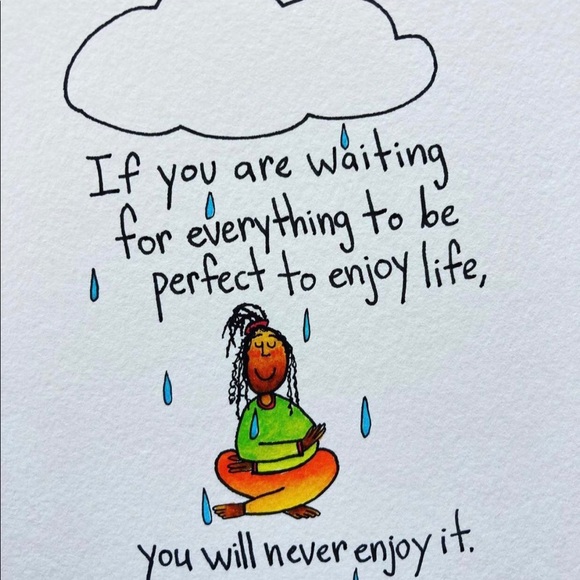 If you are waiting
for everything to be
perfect to enjoy life,
you will never enjoy it.